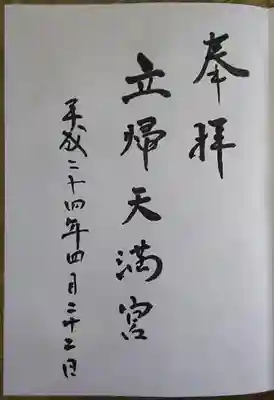 奉拝
立帰天満宮
平成二十四年四月二十二日